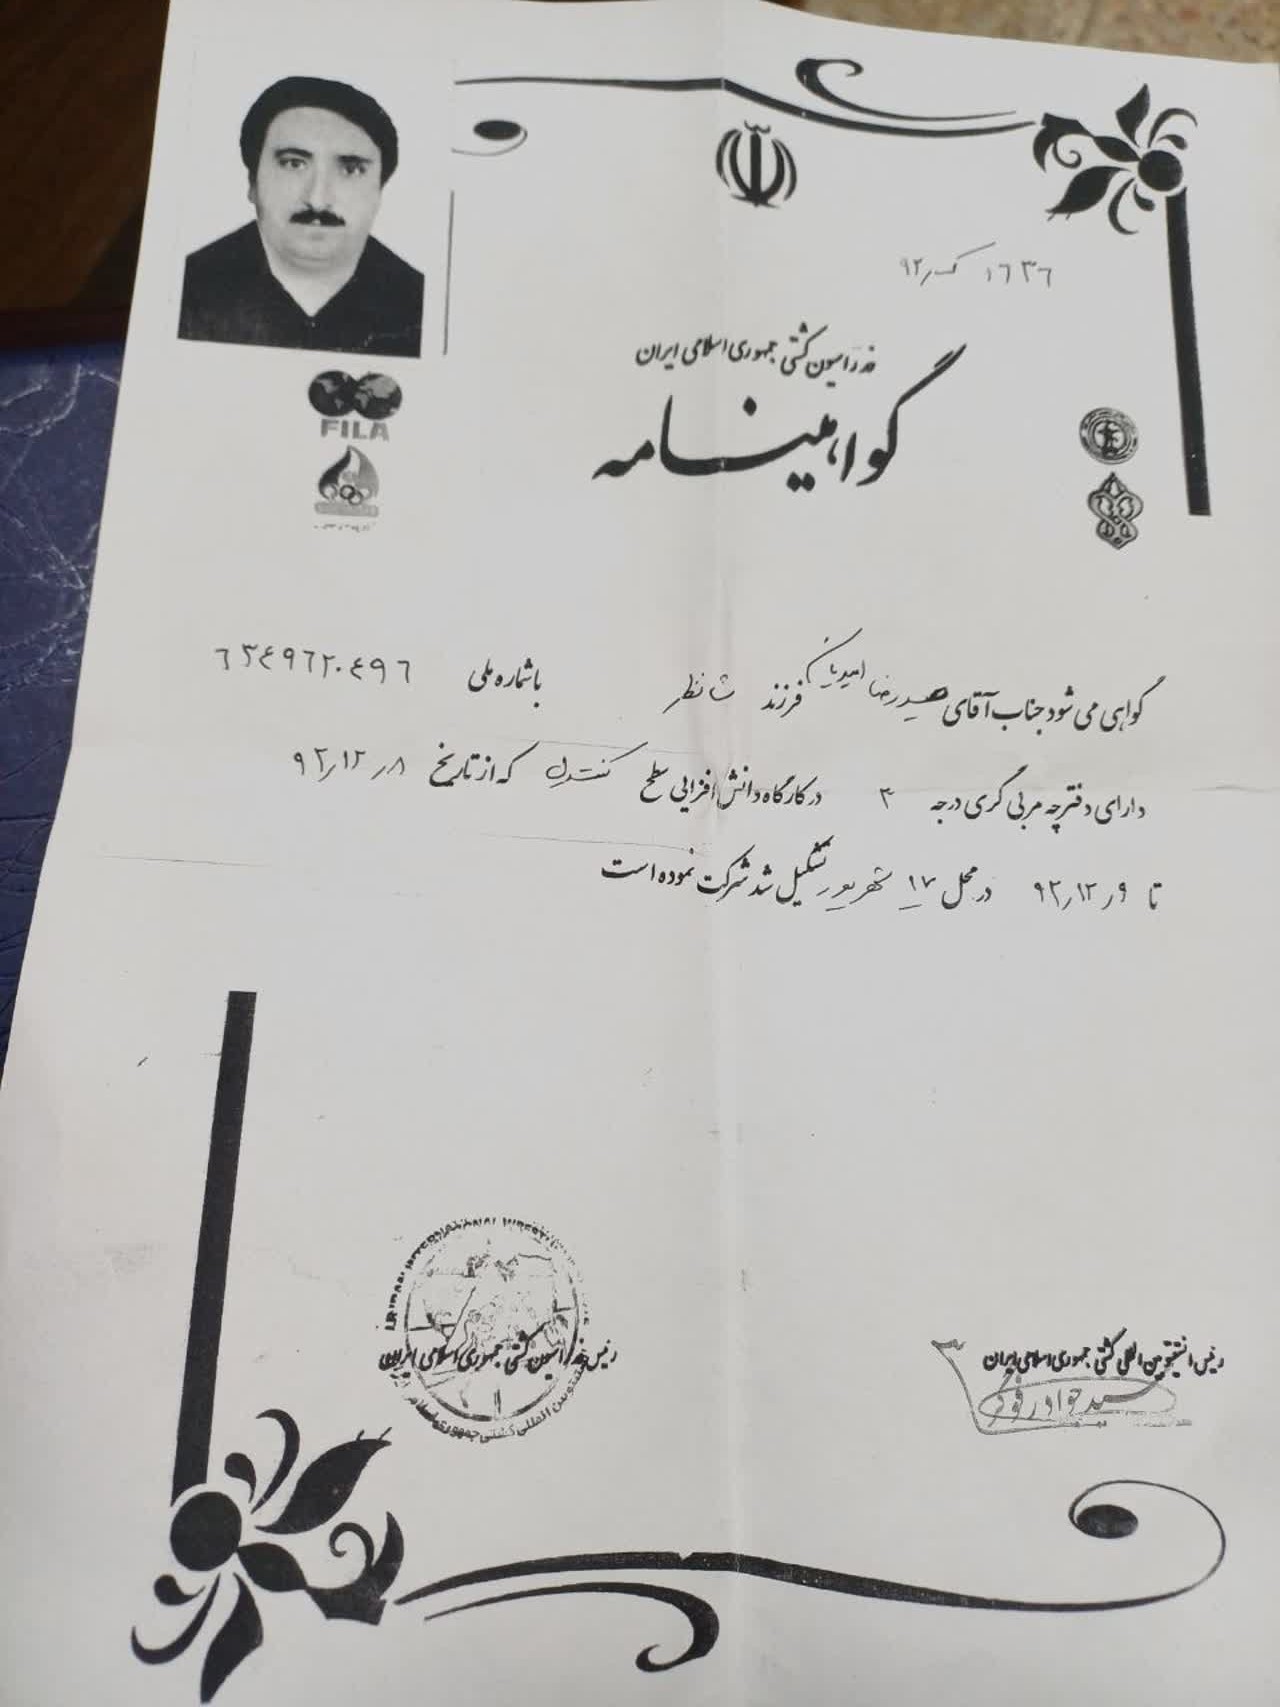 ۱۶۳۶ ک ر۹۲
فدراسیون کشتی جمهوری اسلامی ایران
گواهینامه
FILA
گواهی می شود جناب آقای حمیدرضا امیدیان فرزند شانظر با شماره ملی ۶۳۴۹۶۲۰۴۹۶
دارای دفترچه مربی گری درجه ۳ در کارگاه دانش افزایی سطح کنترل که از تاریخ ۹۲٫۱۲٫۸
تا ۹۲٫۱۲٫۹ در محل ۱۷ شهریور تشکیل شد شرکت نموده است
رئیس انستیتو بین المللی کشتی جمهوری اسلامی ایران
سید جواد
رئیس فدراسیون کشتی جمهوری اسلامی ایران
INTERNATIONAL
انستیتو بین المللی کشتی جمهوری اسلامی ایران